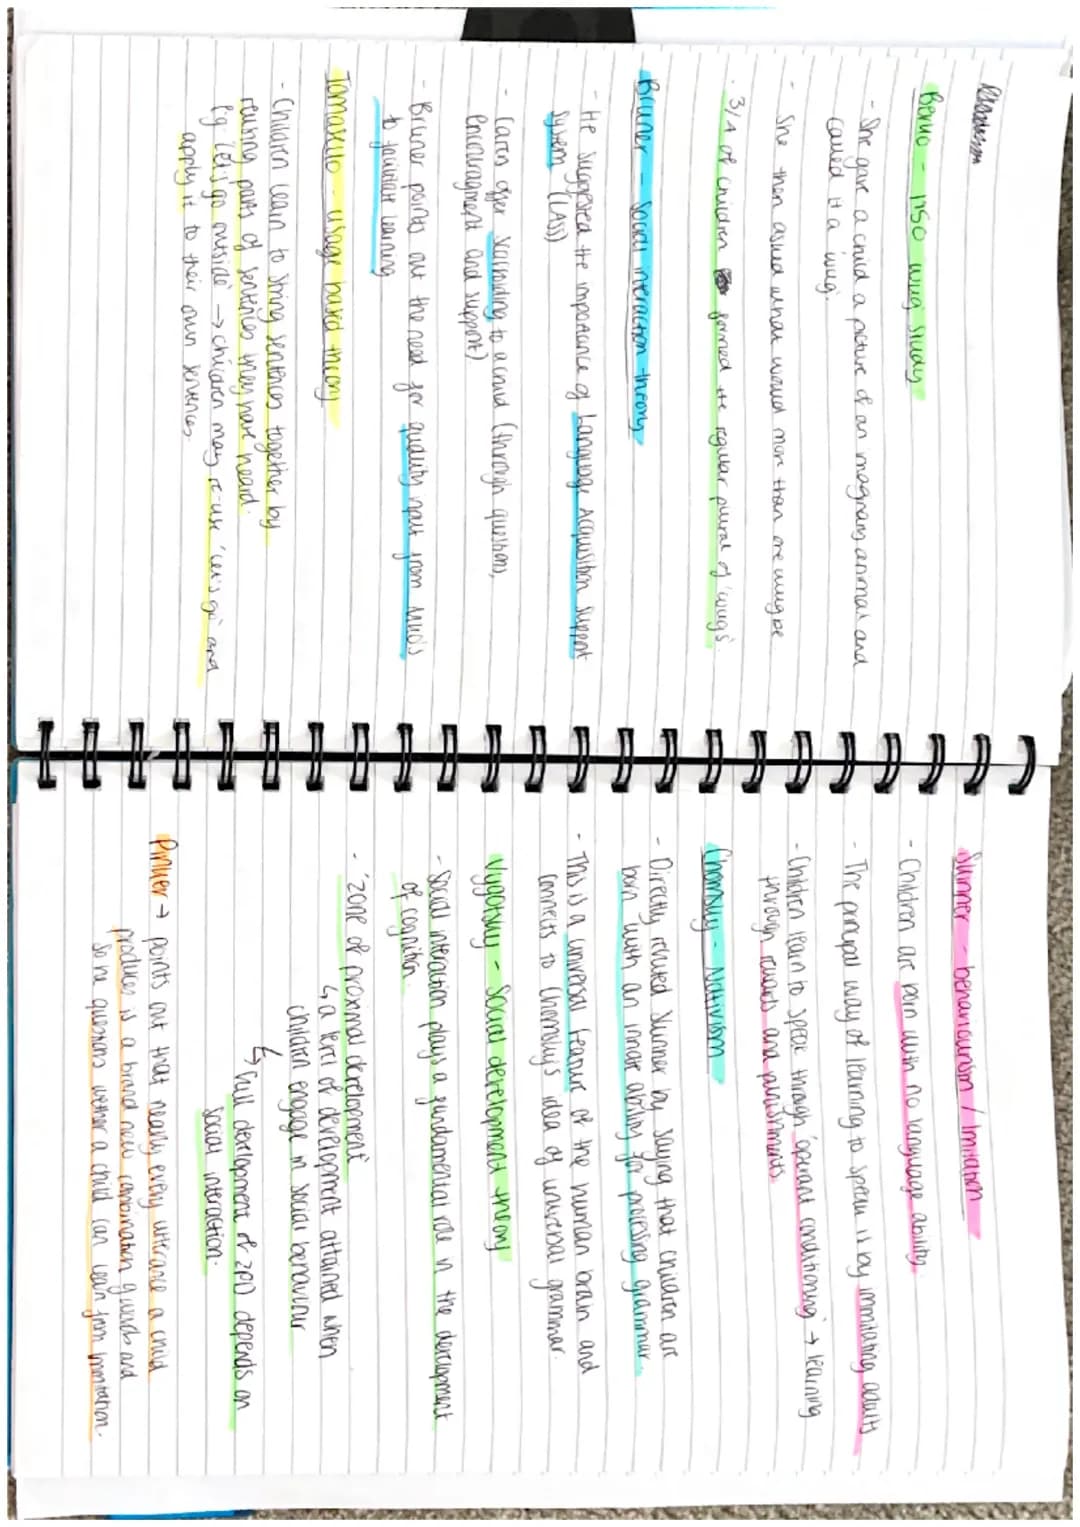 Berko - 1950 wug study
- She gave a child a picture of an imaginary animal and
called it a 'wug'.
- She then asked what would more than one wug be
- 3/4 of children formed the regular plural of 'wugs'.
Bruner - Social interaction theory
- He suggested the importance of Language Acquisition Support
System (LASS)
- Carers offer scaffolding to a child (through questions,
encouragment and support)
- Bruner points out the need for quality input from MKO's
to facilitate learning
Tomasello - usage based theory
- Children learn to string sentences together by
reusing parts of sentences they have heard.
Eg 'let's go outside' → children may re-use 'let's go' and
apply it to their own sentences.
Skinner - behaviourism / Imitation
- Children are born with no language ability.
- The principal way of learning to speak is by immitating adults
- Children learn to speak through 'operant conditioning' → learning
through rewards and punishments.
Chomsky - Nativism
- Directly refuted Skinner by saying that children are
born with an innate ability for processing grammar.
- This is a universal feature of the human brain and
connects to Chomsky's idea of universal grammar.
Vygotsky - Social development theory
- Social interaction plays a fundamental role in the development
of cognition.
- 'Zone of proximal development'
↳ a level of development attained when
children engage in social behaviour
↳ Full development of ZPD depends on
social interaction.
Pinker → points out that nearly every utterance a child
produces is a brand new combination of words and
so he questions wether a child can learn from immitation.